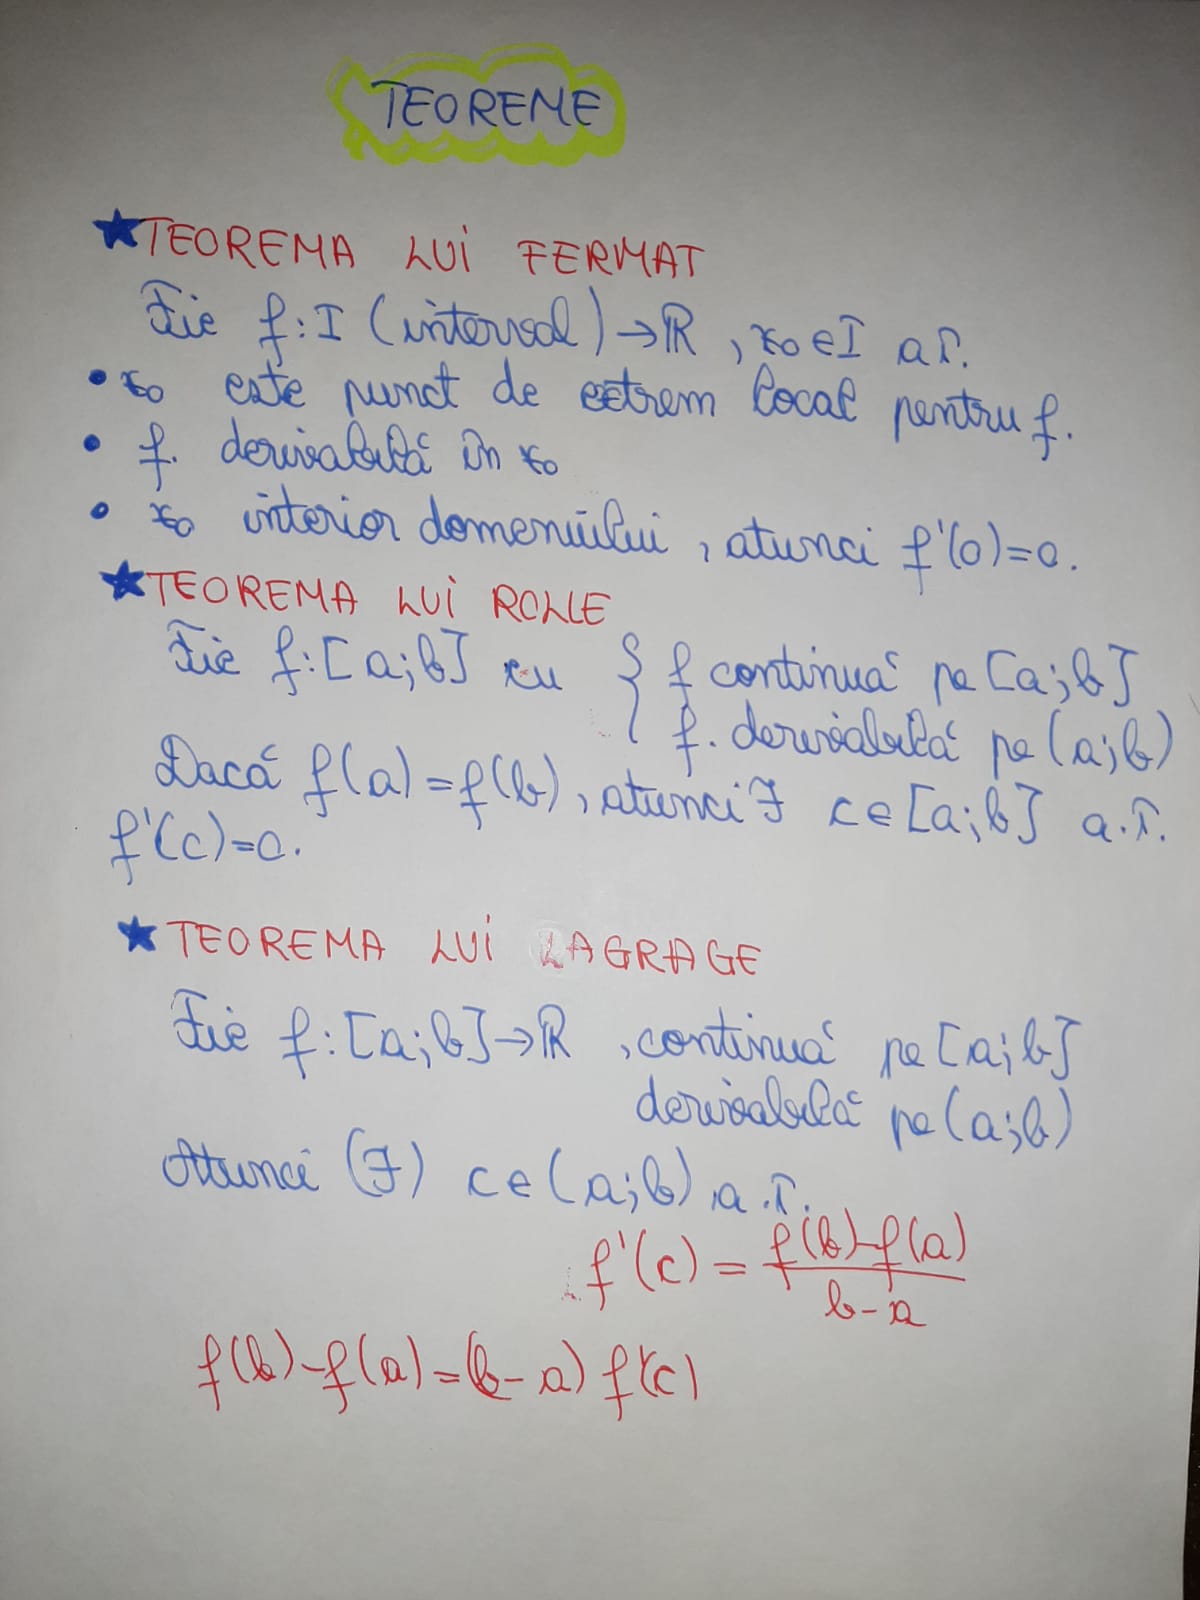 TEOREME
TEOREMA LUI FERMAT
Fie f: I (interval) → ℝ, x₀ ∈ I a.î.
• x₀ este punct de extrem local pentru f.
• f. derivabilă în x₀
• x₀ interior domeniului, atunci f'(0)=0.
TEOREMA LUI ROLLE
Fie f: [a;b] cu { f continuă pe [a;b]
f. derivabilă pe (a;b)
Dacă f(a)=f(b), atunci ∃ c∈[a;b] a.î.
f'(c)=0.
TEOREMA LUI LAGRAGE
Fie f: [a;b]→ℝ, continuă pe [a;b]
derivabilă pe (a;b)
Atunci (∃) c∈(a;b) a.î.
f'(c) = f(b)-f(a) / b-a
f(b)-f(a)=(b-a) f'(c)